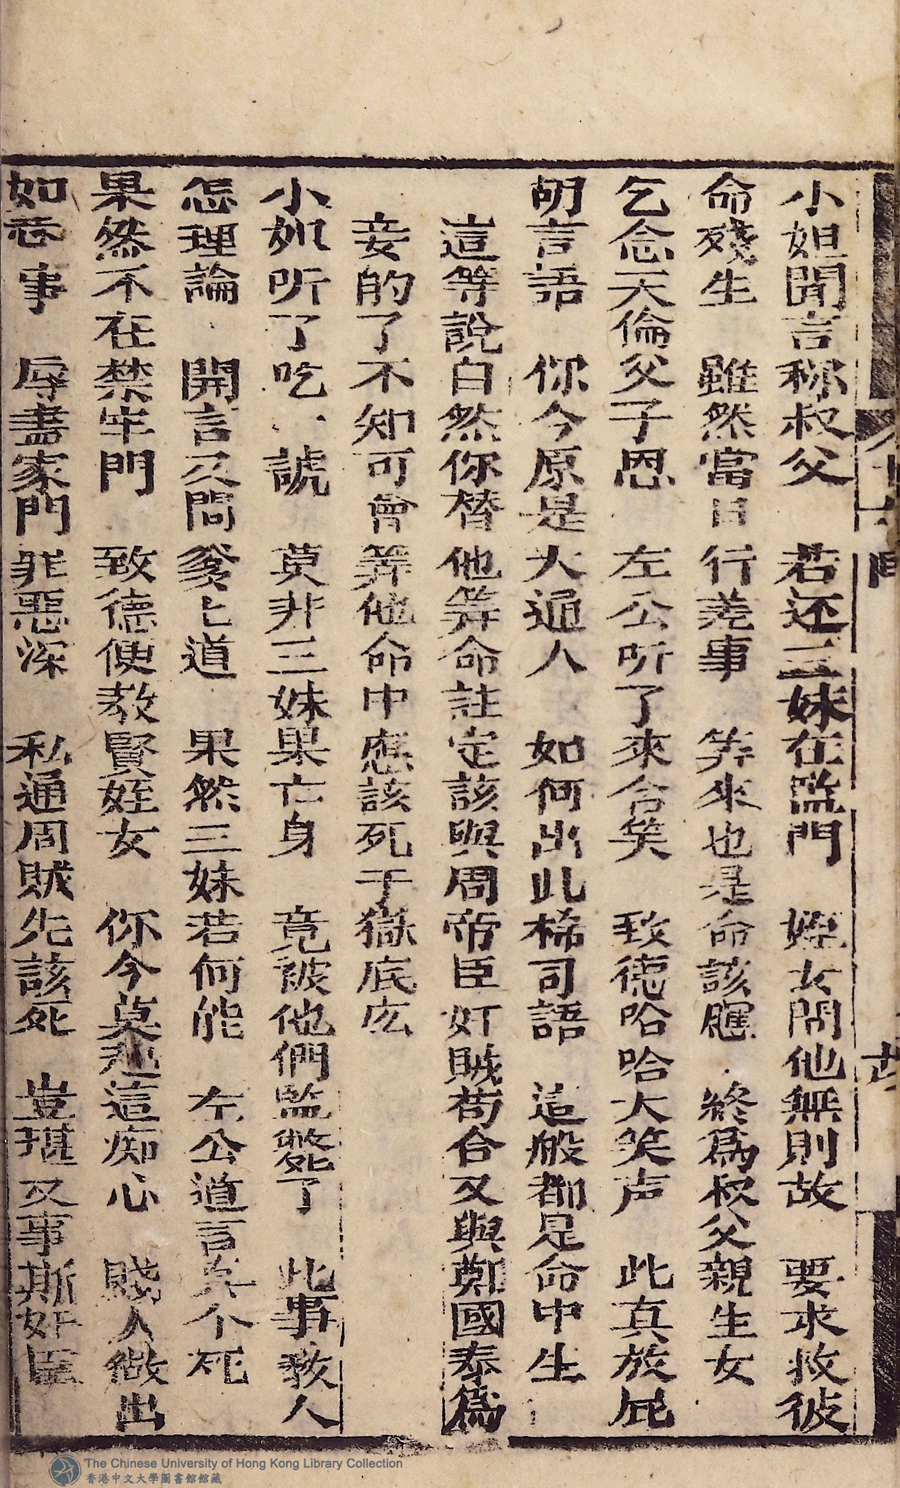 小姐聞言称叔父 若还三妹在監門 姪女問他無則故 要求救彼
命殘生 雖然當日行差事 筭來也是命該應 終爲叔父親生女
乞念天倫父子恩 左公听了來含笑 致德哈哈大笑声 此真放屁
胡言語 你今原是大通人 如何出此稀奇語 這般都是命中生
這等說白然你替他筭命註定該與周帝臣奸賊苟合又與鄭國泰爲
妾的了不知可會筭他命中應該死于獄底庅
小姐听了吃一諕 莫非三妹果亡身 竟被他們監斃了 此事教人
怎理論 開言又問爹上道 果然三妹若何能 左公道言真不死
果然不在禁牢門 致德便教賢姪女 你今莫起這痴心 賤人做出
如此事 辱盡家門罪惡深 私通周賊先該死 豈堪又事斯奸臣
The Chinese University of Hong Kong Library Collection
香港中文大學圖書館館藏